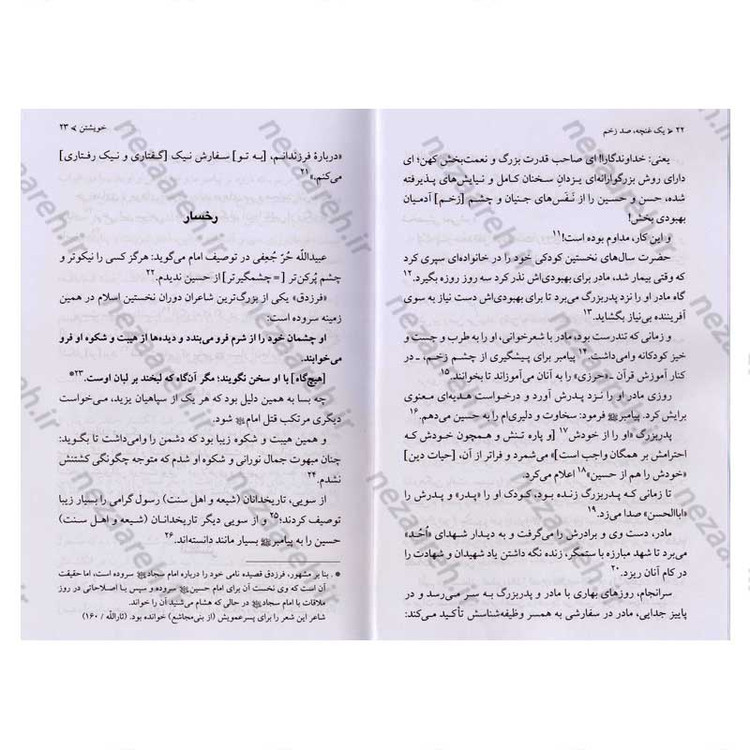 ۲۲ < یک غنچه، صد زخم
یعنی: خداوندگارا! ای صاحب قدرت بزرگ و نعمت‌بخش کهن؛ ای
دارای روش بزرگوارانه‌ای یزدانِ سخنان کامل و نیایش‌های پذیرفته
شده، حسن و حسین را از نَفَس‌های جنیان و چشم [زخم] آدمیان
بهبودی بخش!
و این کار، مداوم بوده است!۱۱
حضرت سال‌های نخستین کودکی خود را در خانواده‌ای سپری کرد
که وقتی بیمار شد، مادر برای بهبودی‌اش نذر کرد سه روز روزه بگیرد.۱۲
گاه مادر او را نزد پدربزرگ می‌برد تا برای بهبودی‌اش دست نیاز به سوی
آفریننده بی‌نیاز بگشاید.۱۳
و زمانی که تندرست بود، مادر با شعرخوانی، او را به طرب و جست و
خیز کودکانه وامی‌داشت.۱۴ پیامبر برای پیشگیری از چشم زخم، ـ در
کنار آموزش قرآن ـ «حرزی» را به آنان می‌آموزاند تا بخوانند.۱۵
روزی مادر او را نزد پدرش آورد و درخواست هدیه‌ای معنوی
برایش کرد. پیامبرﷺ فرمود: سخاوت و دلیری‌ام را به حسین می‌دهم.۱۶
پدربزرگ «او را از خودش۱۷ [و پاره تنش و همچون خودش که
احترامش بر همگان واجب است]» می‌شمرد و فراتر از آن، [حیات دین]
«خودش را هم از حسین»۱۸ اعلام می‌کرد.
تا زمانی که پدربزرگ زنده بود، کودک او را «پدر» و پدرش را
«اباالحسن» صدا می‌زد.۱۹
مادر، دست وی و برادرش را می‌گرفت و به دیدار شهدای «اُحُد»
می‌برد تا شهد مبارزه با ستمگر، زنده نگه داشتن یاد شهیدان و شهادت را
در کام آنان ریزد.۲۰
سرانجام، روزهای بهاری با مادر و پدربزرگ به سر می‌رسد و در
پاییز جدایی، مادر در سفارشی به همسر وظیفه‌شناسش تأکید می‌کند:
خویشتن > ۲۳
«درباره فرزندانم، [به تو] سفارش نیک [گفتاری و نیک رفتاری]
می‌کنم.»۲۱
رخسار
عبیداللّه حُرّ جُعفی در توصیف امام می‌گوید: هرگز کسی را نیکوتر و
چشم پُرکن‌تر [= چشمگیرتر] از حسین ندیدم.۲۲
«فرزدق» یکی از بزرگ‌ترین شاعران دوران نخستین اسلام در همین
زمینه سروده است:
او چشمان خود را از شرم فرو می‌بندد و دیده‌ها از هیبت و شکوه او فرو
می‌خوابند.
[هیچ‌گاه] با او سخن نگویند؛ مگر آن‌گاه که لبخند بر لبان اوست.۲۳*
چه بسا به همین دلیل بود که هر یک از سپاهیان یزید، می‌خواست
دیگری مرتکب قتل امام شود.
و همین هیبت و شکوه زیبا بود که دشمن را وامی‌داشت تا بگوید:
چنان مبهوت جمال نورانی و شکوه او شدم که متوجه چگونگی کشتنش
نشدم.۲۴
از سویی، تاریخدانان (شیعه و اهل سنت) رسول گرامی را بسیار زیبا
توصیف کردند؛۲۵ و از سویی دیگر تاریخدانان (شیعه و اهل سنت)
حسین را به پیامبرﷺ بسیار مانند دانسته‌اند.۲۶
* . بنا بر مشهور، فرزدق قصیده نامی خود را درباره امام سجاد سروده است، اما حقیقت
آن است که وی نخست آن برای امام حسین سروده و سپس با اصلاحاتی در روز
ملاقات با امام سجاد در حالی که هشام می‌شنید آن را خواند.
شاعر این شعر را برای پسرعمویش (از بنی‌مجاشع) خوانده بود. (ثاراللّه / ۱۶۰)
nezaareh.ir